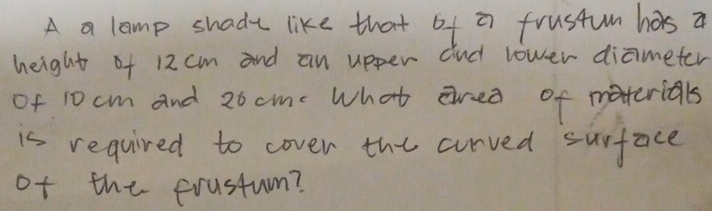 A a lamp shade like that of a frustum has a
height of 12 cm and an upper and lower diameter
of 10 cm and 20 cm. What area of materials
is required to cover the curved surface
of the frustum?